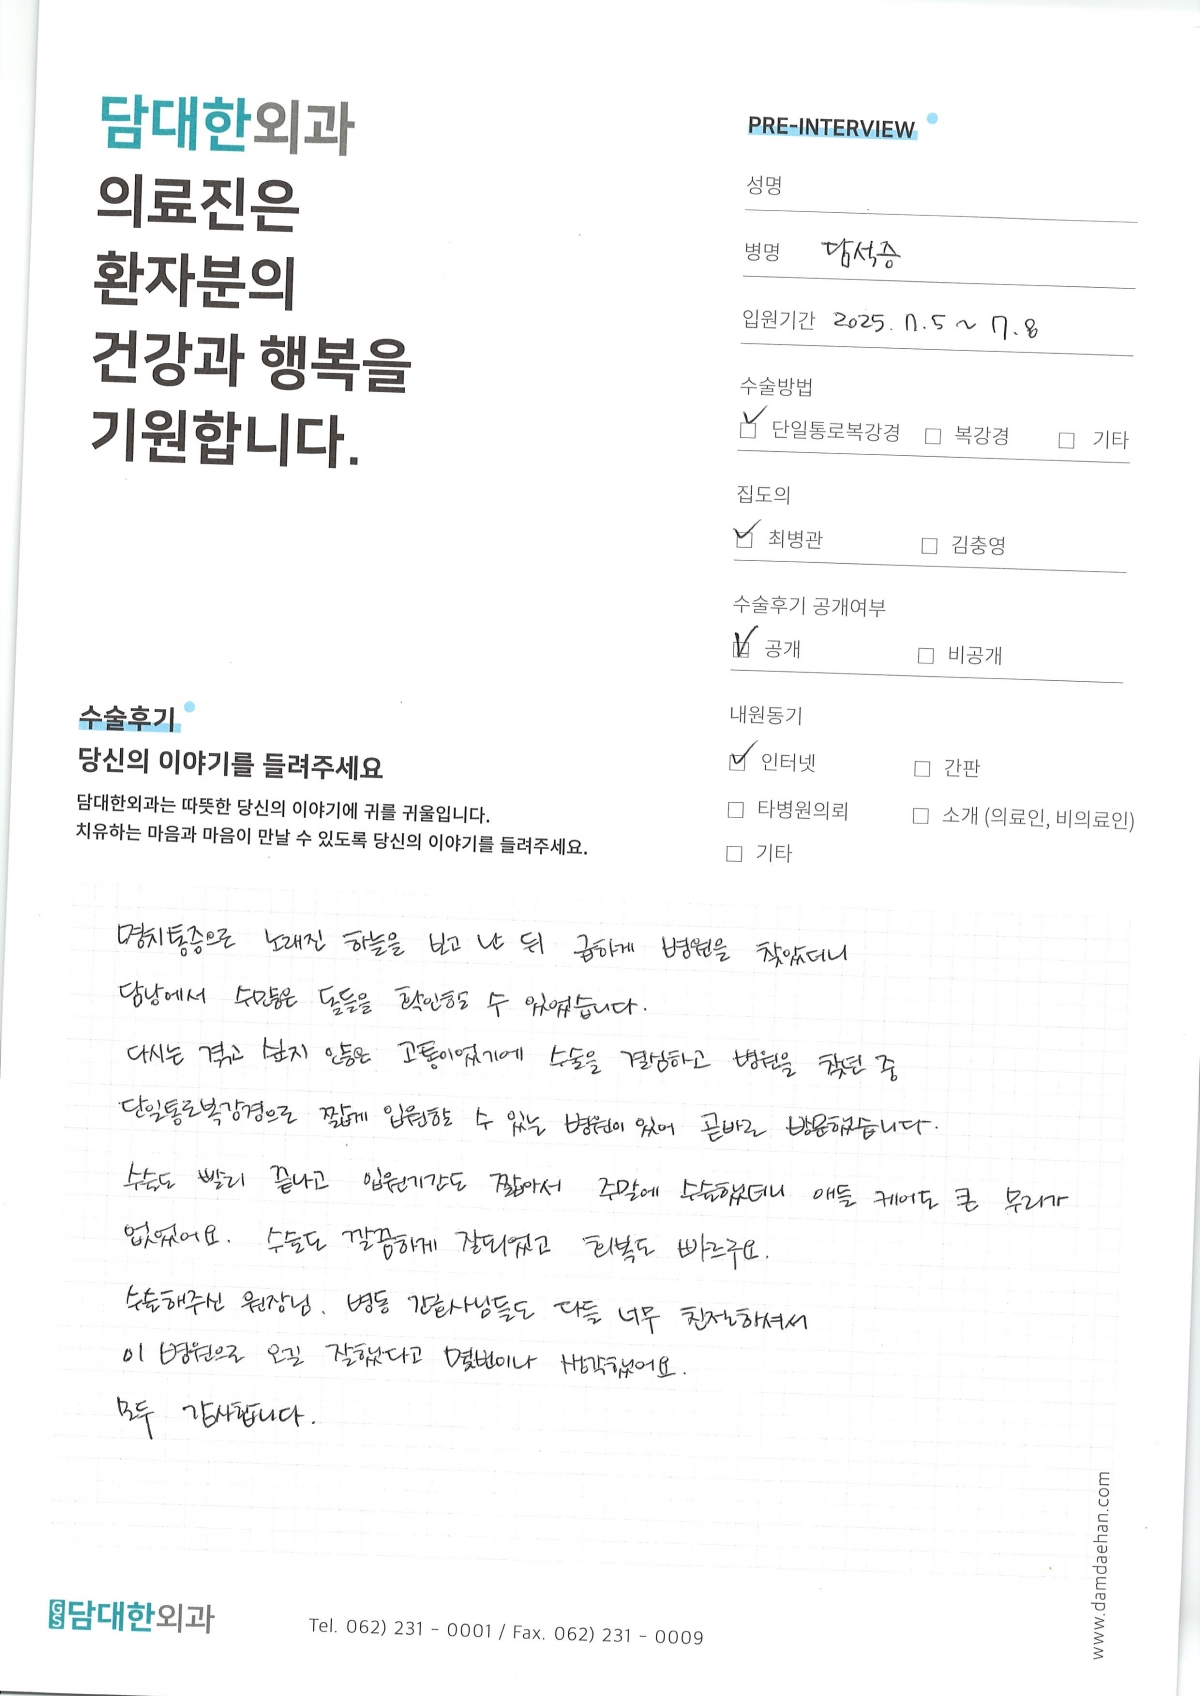 담대한외과
의료진은
환자분의
건강과 행복을
기원합니다.
PRE-INTERVIEW
성명
병명 담석증
입원기간 2025. 7. 5 ~ 7. 8
수술방법
☑ 단일통로복강경 □ 복강경 □ 기타
집도의
☑ 최병관 □ 김충영
수술후기 공개여부
☑ 공개 □ 비공개
내원동기
☑ 인터넷 □ 간판
□ 타병원의뢰 □ 소개 (의료인, 비의료인)
□ 기타
수술후기
당신의 이야기를 들려주세요
담대한외과는 따뜻한 당신의 이야기에 귀를 귀울입니다.
치유하는 마음과 마음이 만날 수 있도록 당신의 이야기를 들려주세요.
명치통증으로 노래진 하늘을 보고 난 뒤 급하게 병원을 찾았더니
담낭에서 수많은 돌들을 확인할 수 있었습니다.
다시는 겪고 싶지 않은 고통이었기에 수술을 결심하고 병원을 찾던 중
단일통로복강경으로 짧게 입원할 수 있는 병원이 있어 곧바로 방문했습니다.
수술도 빨리 끝나고 입원기간도 짧아서 주말에 수술했더니 애들 케어도 큰 무리가
없었어요. 수술도 깔끔하게 잘되었고 회복도 빠르구요.
수술해주신 원장님, 병동 간호사님들도 다들 너무 친절하셔서
이 병원으로 오길 잘했다고 몇번이나 생각했어요.
모두 감사합니다.
www.damdaehan.com
GS담대한외과
Tel. 062) 231 - 0001 / Fax. 062) 231 - 0009